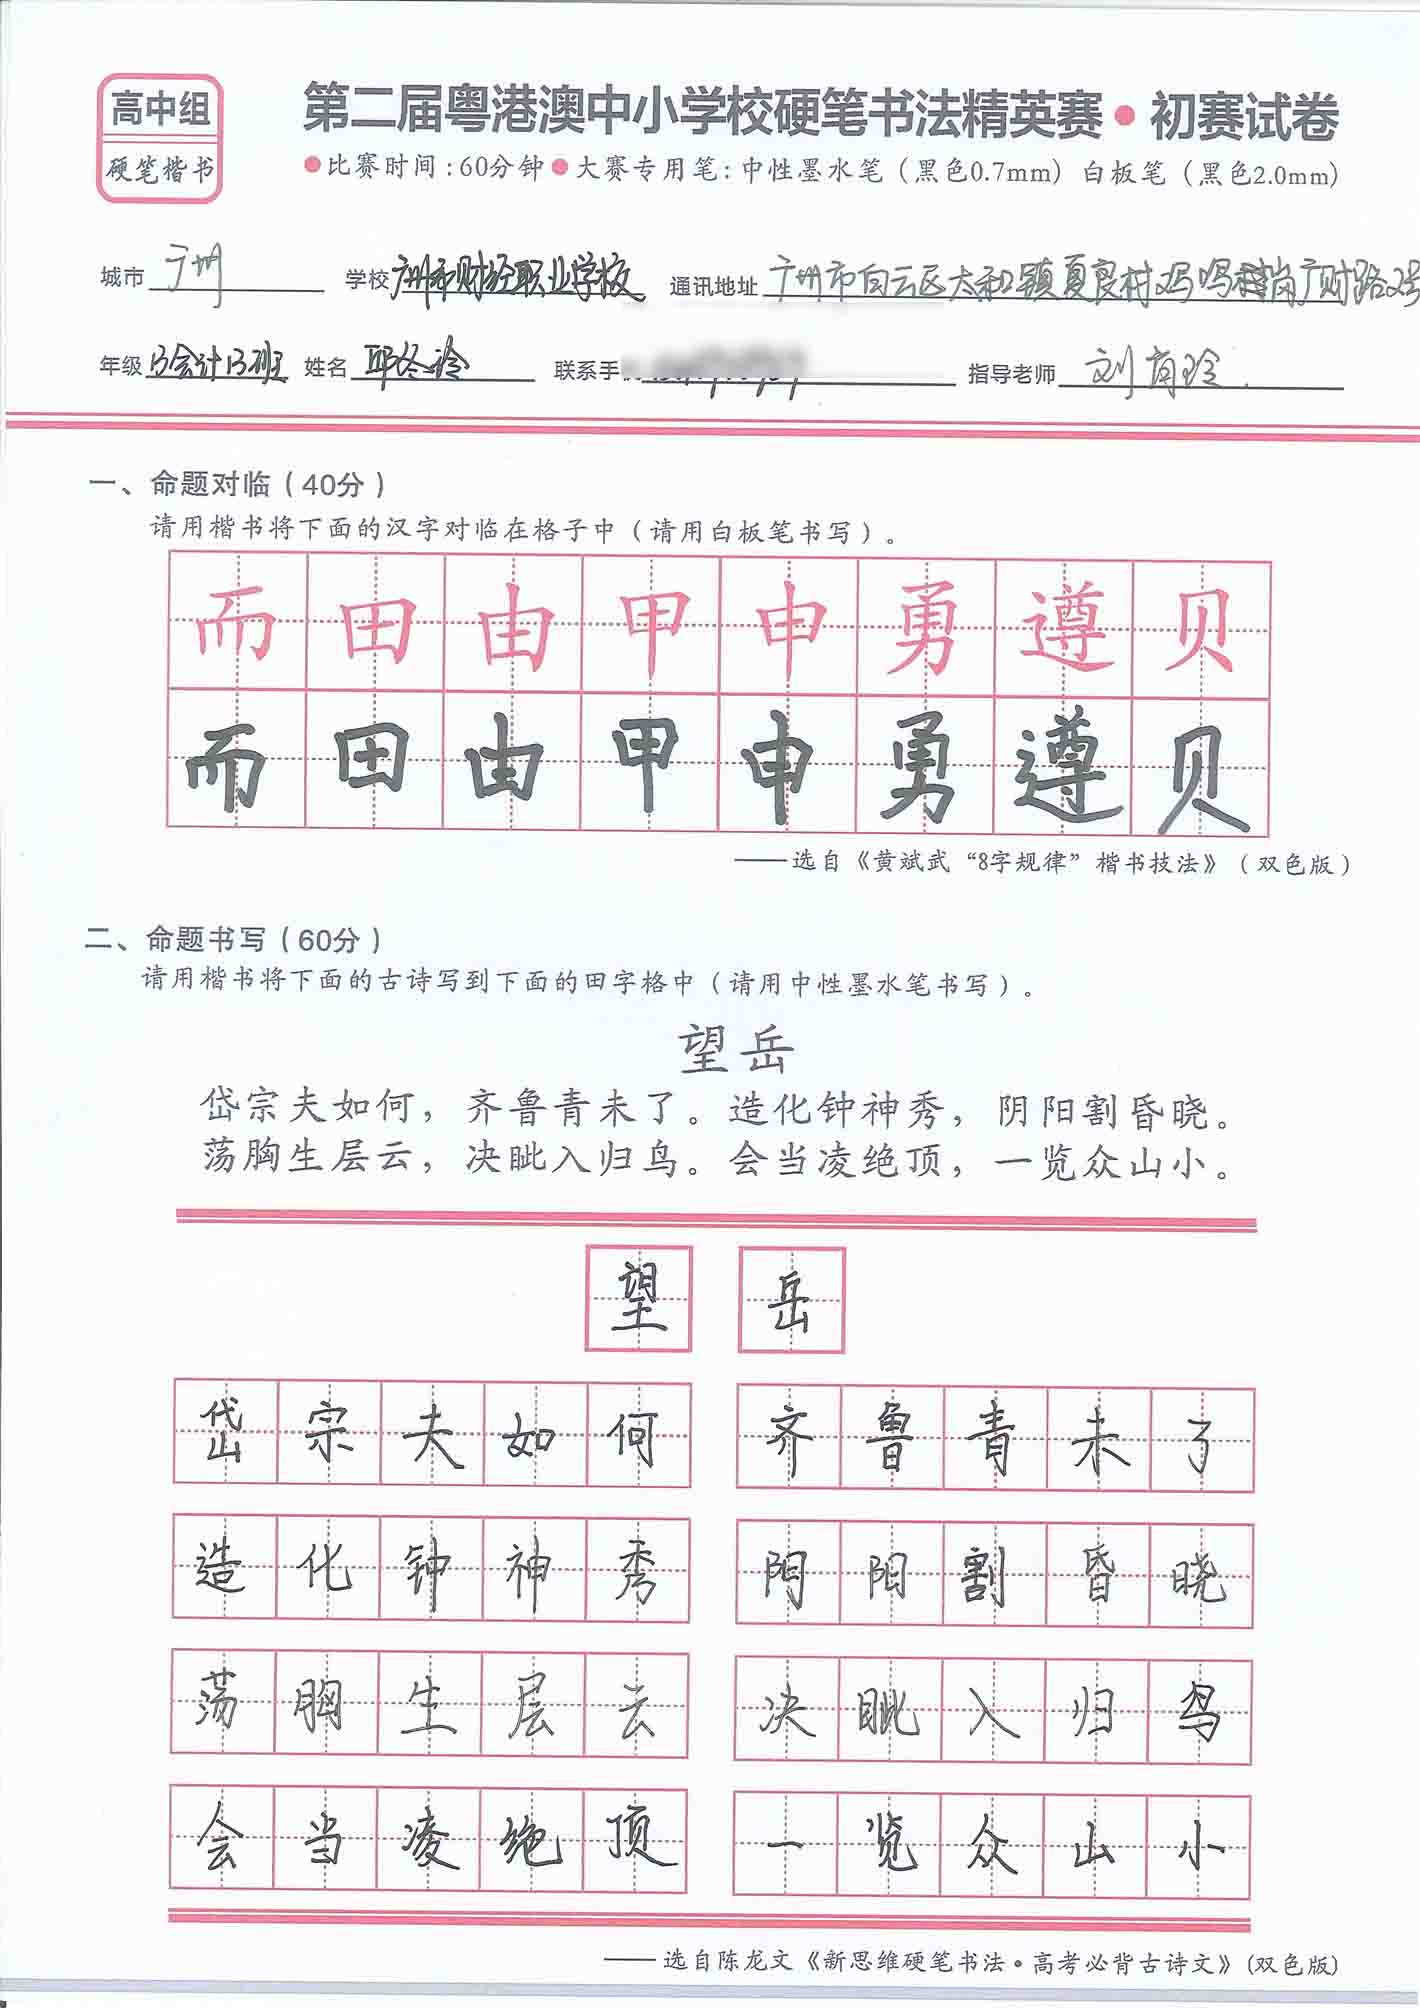 高中组
硬笔楷书
第二届粤港澳中小学校硬笔书法精英赛·初赛试卷
●比赛时间:60分钟●大赛专用笔:中性墨水笔(黑色0.7mm) 白板笔(黑色2.0mm)
城市 广州 学校 广州市财经职业学校 通讯地址 广州市白云区太和镇夏良村 广财路2号
年级 13会计13班 姓名 邱冬玲 联系手 指导老师 刘育玲
一、命题对临(40分)
请用楷书将下面的汉字对临在格子中(请用白板笔书写)。
而田由甲申勇遵贝
而田由甲申勇遵贝
——选自《黄斌武“8字规律”楷书技法》(双色版)
二、命题书写(60分)
请用楷书将下面的古诗写到下面的田字格中(请用中性墨水笔书写)。
望岳
岱宗夫如何,齐鲁青未了。造化钟神秀,阴阳割昏晓。
荡胸生层云,决眦入归鸟。会当凌绝顶,一览众山小。
望岳
岱宗夫如何 齐鲁青未了
造化钟神秀 阴阳割昏晓
荡胸生层云 决眦入归鸟
会当凌绝顶 一览众山小
——选自陈龙文《新思维硬笔书法·高考必背古诗文》(双色版)